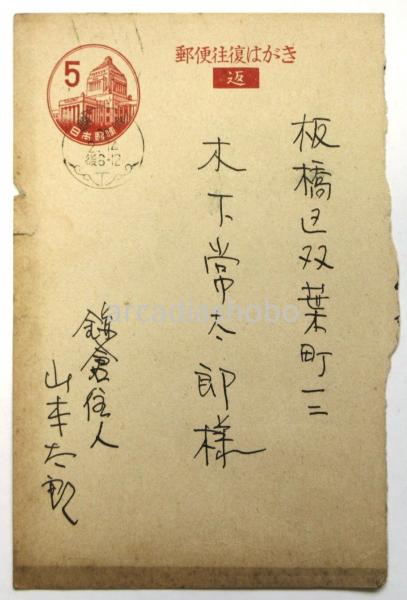 郵便往復はがき
返
5
日本郵便
後6-12
板橋区双葉町一三
木下常太郎様
鎌倉住人
山本太郎
arcadiashobo